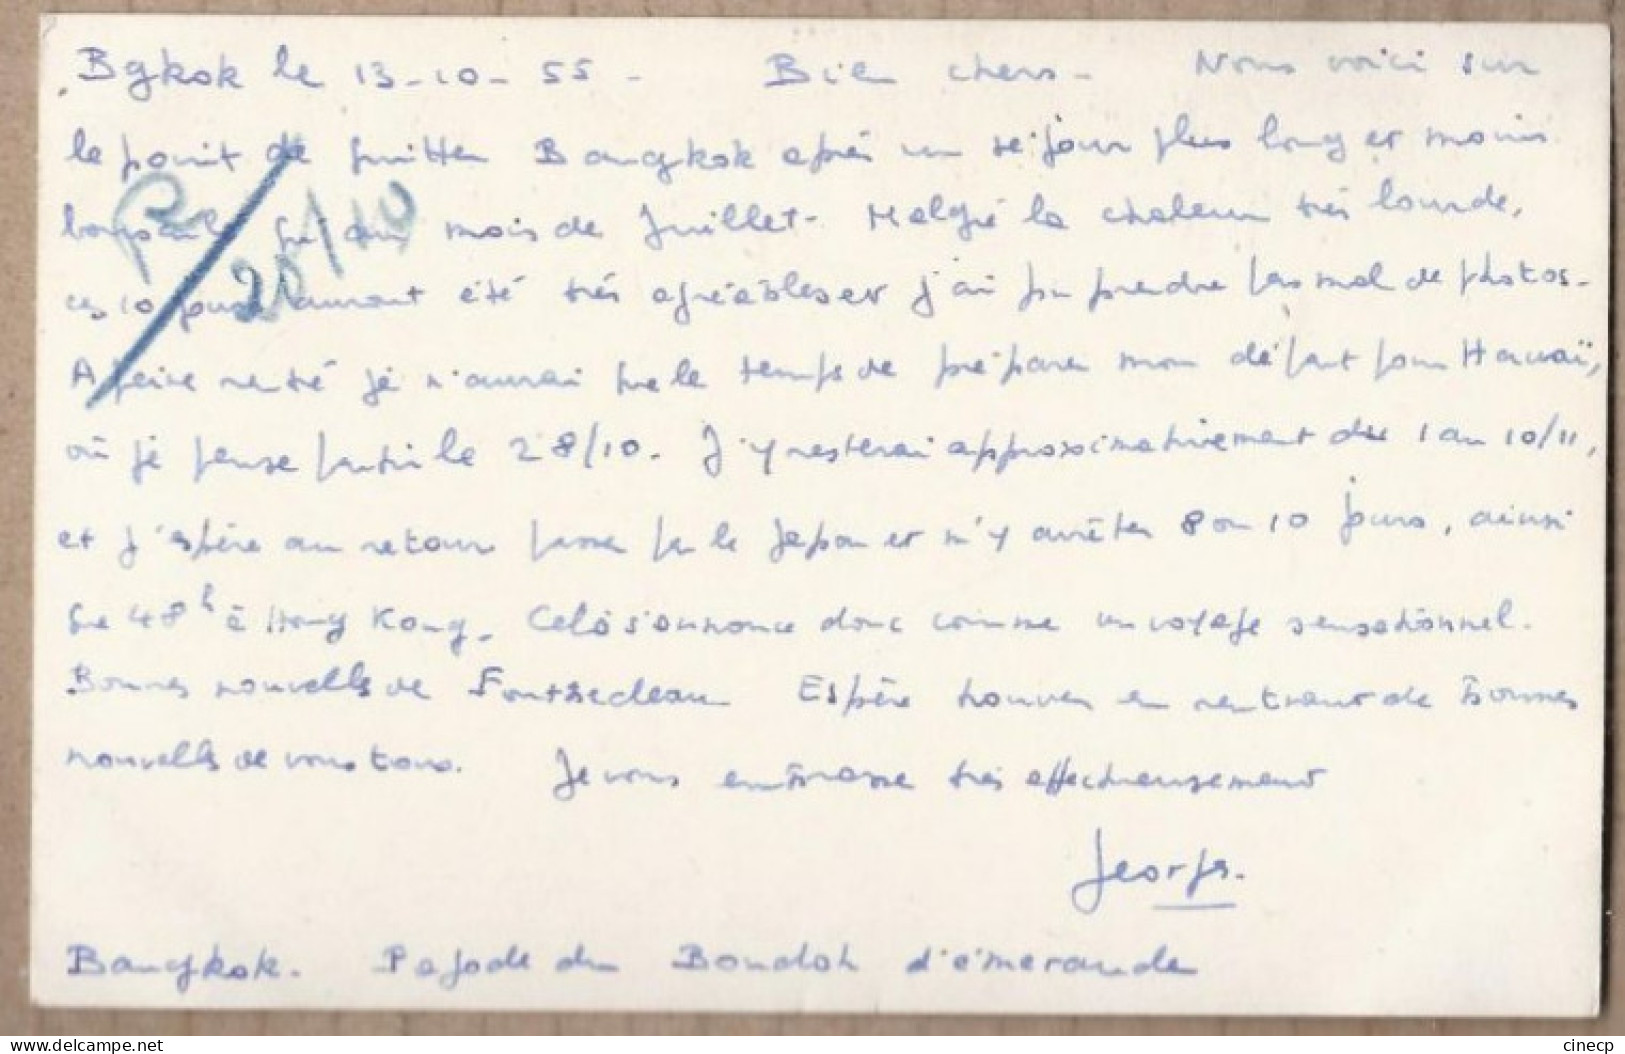 Bgkok le 13-10-55 - Bien chers - Nous voici sur
le point de quitter Bangkok après un séjour plus long et moins
qu'au mois de Juillet - Malgré la chaleur très lourde,
ces 10 jours auront été très agréables et j'ai pu prendre pas mal de photos -
A peine rentré je n'aurai que le temps de préparer mon départ pour Hawaï,
où je pense partir le 28/10. J'y resterai approximativement du 1 au 10/11,
et j'espère au retour passer par le Japon et m'y arrêter 8 ou 10 jours, ainsi
que 48h à Hong Kong. Celà s'annonce donc comme un voyage sensationnel.
Bonnes nouvelles de Fontainebleau Espère trouver en rentrant de bonnes
nouvelles de vous tous. Je vous embrasse très affectueusement
Georges.
Bangkok. Pagode du Boudah d'émeraude
R 20/10
cinecp
delcampe.net